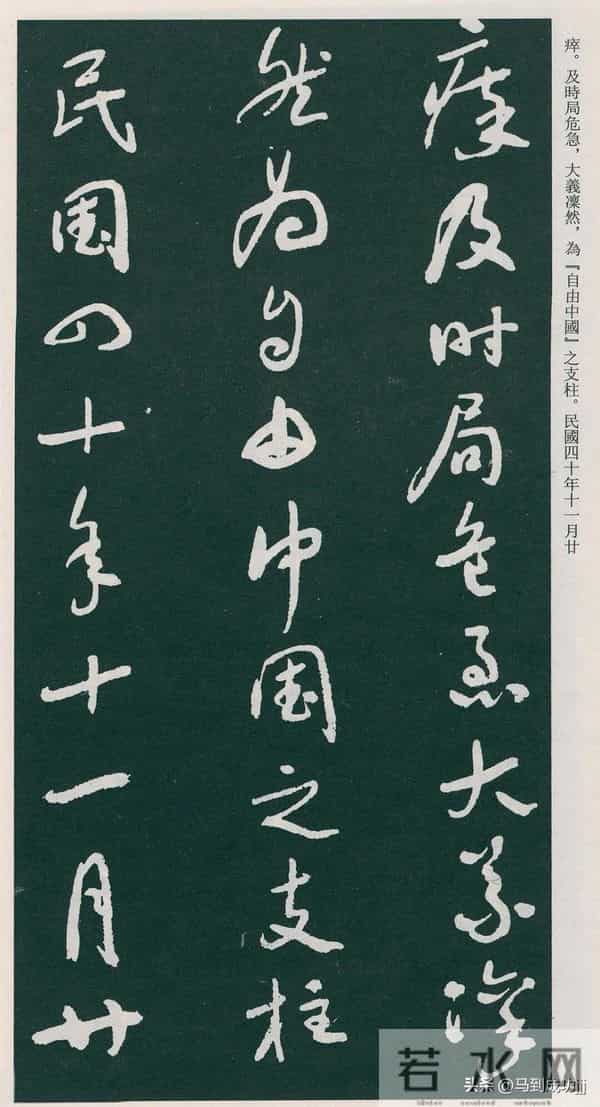 瘁。及時局危急，大義凜然，為『自由中國』之支柱。民國四十年十一月廿
瘁及时局危急大义凜
然为自由中国之支柱
民国四十年十一月廿
若水网
头条@马到成功jjj